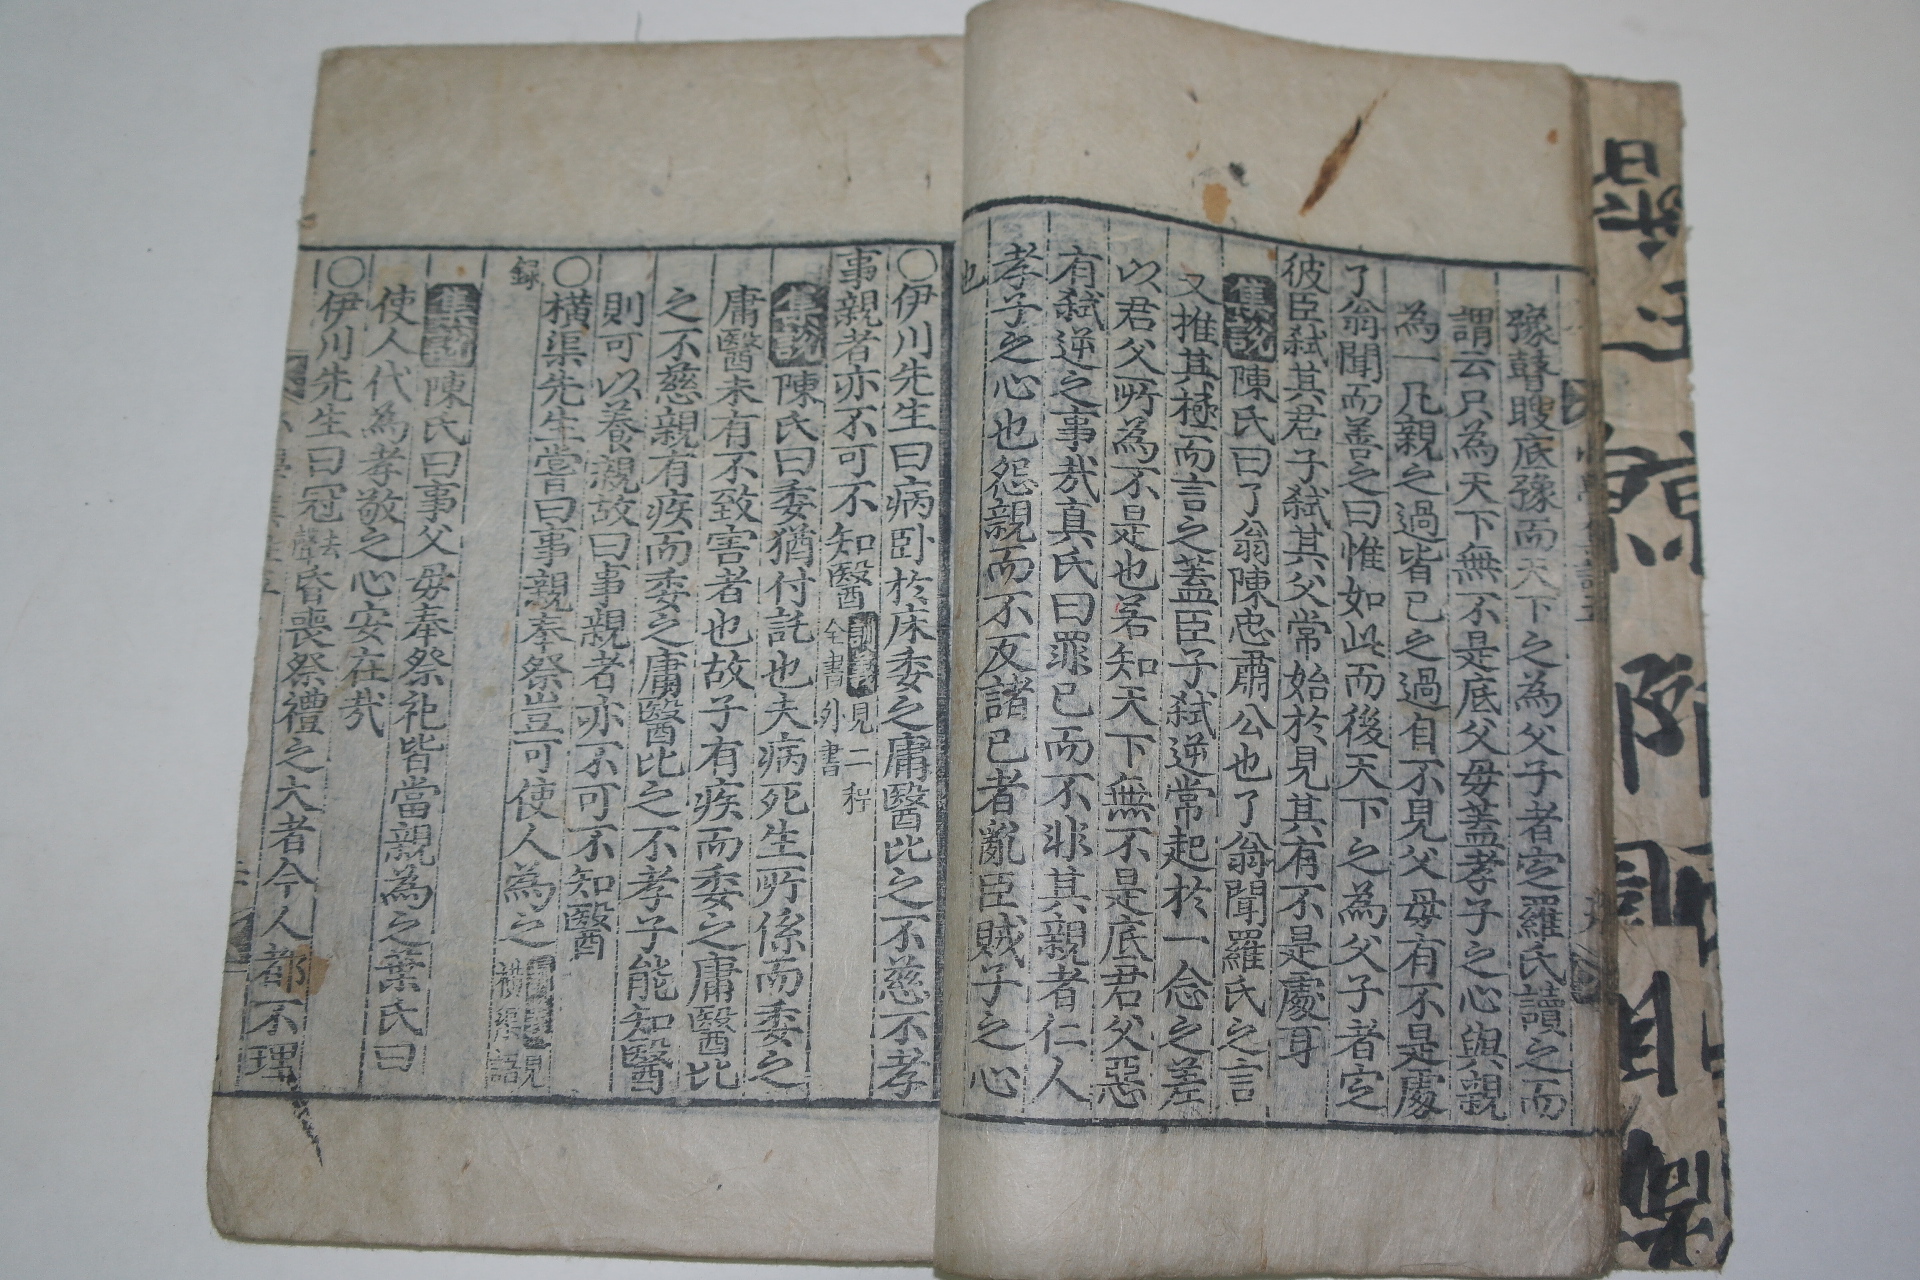 豫瞽瞍底豫而天下之為父子者定羅氏讀之而
謂云只為天下無不是底父母盖孝子之心與親
為一凡親之過皆己之過自不見父母有不是處
了翁聞而善之曰惟如此而後天下之為父子者定
彼臣弑其君子弑其父常始於見其有不是處耳
集說陳氏曰了翁陳忠肅公也了翁聞羅氏之言
又推其極而言之盖臣子弑逆常起於一念之差
以君父所為不是也若知天下無不是底君父惡
有弑逆之事㢤真氏曰罪己而不非其親者仁人
孝子之心也怨親而不反諸己者亂臣賊子之心
也
〇伊川先生曰病卧於床委之庸醫比之不慈不孝
事親者亦不可不知醫 見二程全書外書
集說陳氏曰委猶付託也夫病死生所係而委之
庸醫未有不致害者也故子有疾而委之庸醫比
之不慈親有疾而委之庸醫比之不孝子能知醫
則可以養親故曰事親者亦不可不知醫
〇橫渠先生嘗曰事親奉祭豈可使人為之 見橫渠語
錄
集說陳氏曰事父母奉祭祀皆當親為之葉氏曰
使人代為孝敬之心安在㢤
〇伊川先生曰冠去聲昏喪祭禮之大者今人都不理